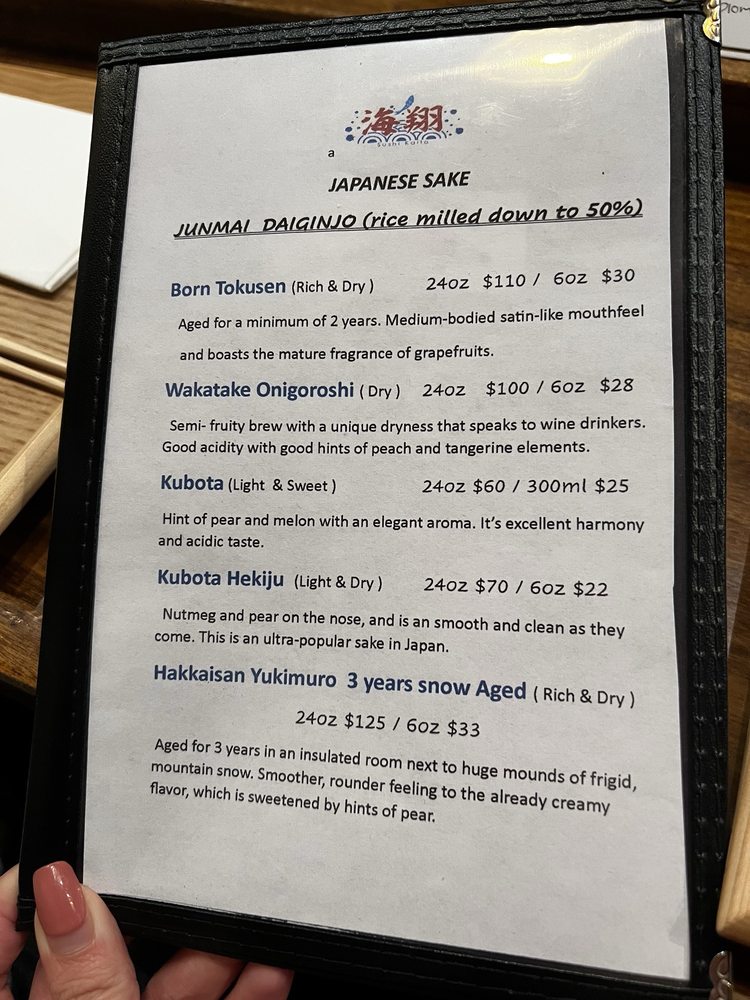 海翔
Sushi Kaito
a
JAPANESE SAKE
JUNMAI DAIGINJO (rice milled down to 50%)
Born Tokusen (Rich & Dry ) 24oz $110 / 6oz $30
Aged for a minimum of 2 years. Medium-bodied satin-like mouthfeel
and boasts the mature fragrance of grapefruits.
Wakatake Onigoroshi ( Dry ) 24oz $100 / 6oz $28
Semi- fruity brew with a unique dryness that speaks to wine drinkers.
Good acidity with good hints of peach and tangerine elements.
Kubota (Light & Sweet ) 24oz $60 / 300ml $25
Hint of pear and melon with an elegant aroma. It's excellent harmony
and acidic taste.
Kubota Hekiju (Light & Dry ) 24oz $70 / 6oz $22
Nutmeg and pear on the nose, and is an smooth and clean as they
come. This is an ultra-popular sake in Japan.
Hakkaisan Yukimuro 3 years snow Aged ( Rich & Dry )
24oz $125 / 6oz $33
Aged for 3 years in an insulated room next to huge mounds of frigid,
mountain snow. Smoother, rounder feeling to the already creamy
flavor, which is sweetened by hints of pear.